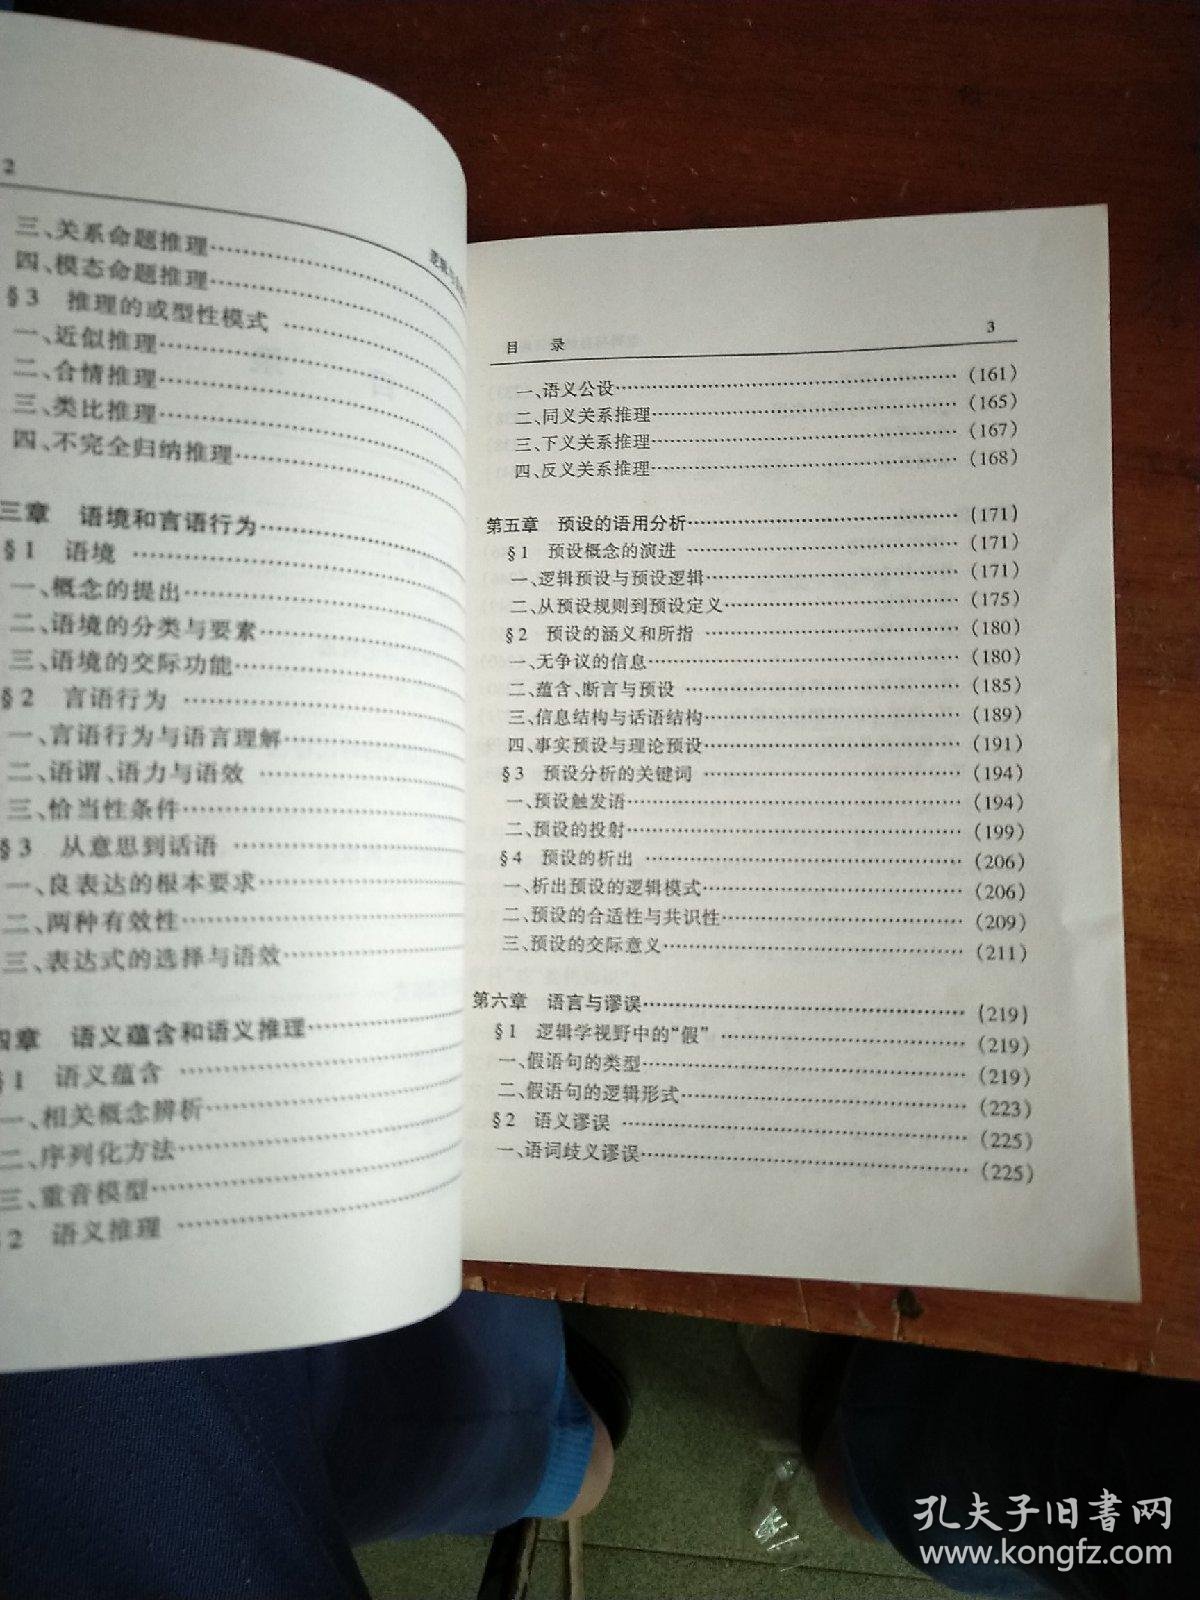 2
三、关系命题推理
四、模态命题推理
§3 推理的或型性模式
一、近似推理
二、合情推理
三、类比推理
四、不完全归纳推理
三章 语境和言语行为
§1 语境
一、概念的提出
二、语境的分类与要素
三、语境的交际功能
§2 言语行为
一、言语行为与语言理解
二、语谓、语力与语效
三、恰当性条件
§3 从意思到话语
一、良表达的根本要求
二、两种有效性
三、表达式的选择与语效
四章 语义蕴含和语义推理
§1 语义蕴含
一、相关概念辨析
二、序列化方法
三、重音模型
2 语义推理
目 录 3
一、语义公设 (161)
二、同义关系推理 (165)
三、下义关系推理 (167)
四、反义关系推理 (168)
第五章 预设的语用分析 (171)
§1 预设概念的演进 (171)
一、逻辑预设与预设逻辑 (171)
二、从预设规则到预设定义 (175)
§2 预设的涵义和所指 (180)
一、无争议的信息 (180)
二、蕴含、断言与预设 (185)
三、信息结构与话语结构 (189)
四、事实预设与理论预设 (191)
§3 预设分析的关键词 (194)
一、预设触发语 (194)
二、预设的投射 (199)
§4 预设的析出 (206)
一、析出预设的逻辑模式 (206)
二、预设的合适性与共识性 (209)
三、预设的交际意义 (211)
第六章 语言与谬误 (219)
§1 逻辑学视野中的“假” (219)
一、假语句的类型 (219)
二、假语句的逻辑形式 (223)
§2 语义谬误 (225)
一、语词歧义谬误 (225)
孔夫子旧書网
www.kongfz.com